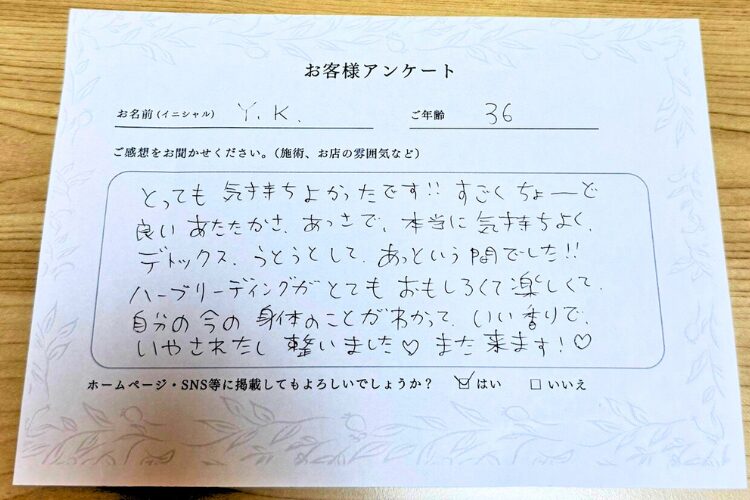 お客様アンケート
お名前(イニシャル) Y.K. ご年齢 36
ご感想をお聞かせください。(施術、お店の雰囲気など)
とっても 気持ちよかったです!! すごく ちょーど
良い あたたかさ、あつさで、本当に 気持ちよく、
デトックス、うとうとして、あっという間でした!!
ハーブリーディングが とても おもしろくて 楽しくて、
自分の 今の 身体の ことが わかって、いい 香りで、
いやされたし 整いました♡ また 来ます!♡
ホームページ・SNS等に掲載してもよろしいでしょうか? ☑はい □いいえ